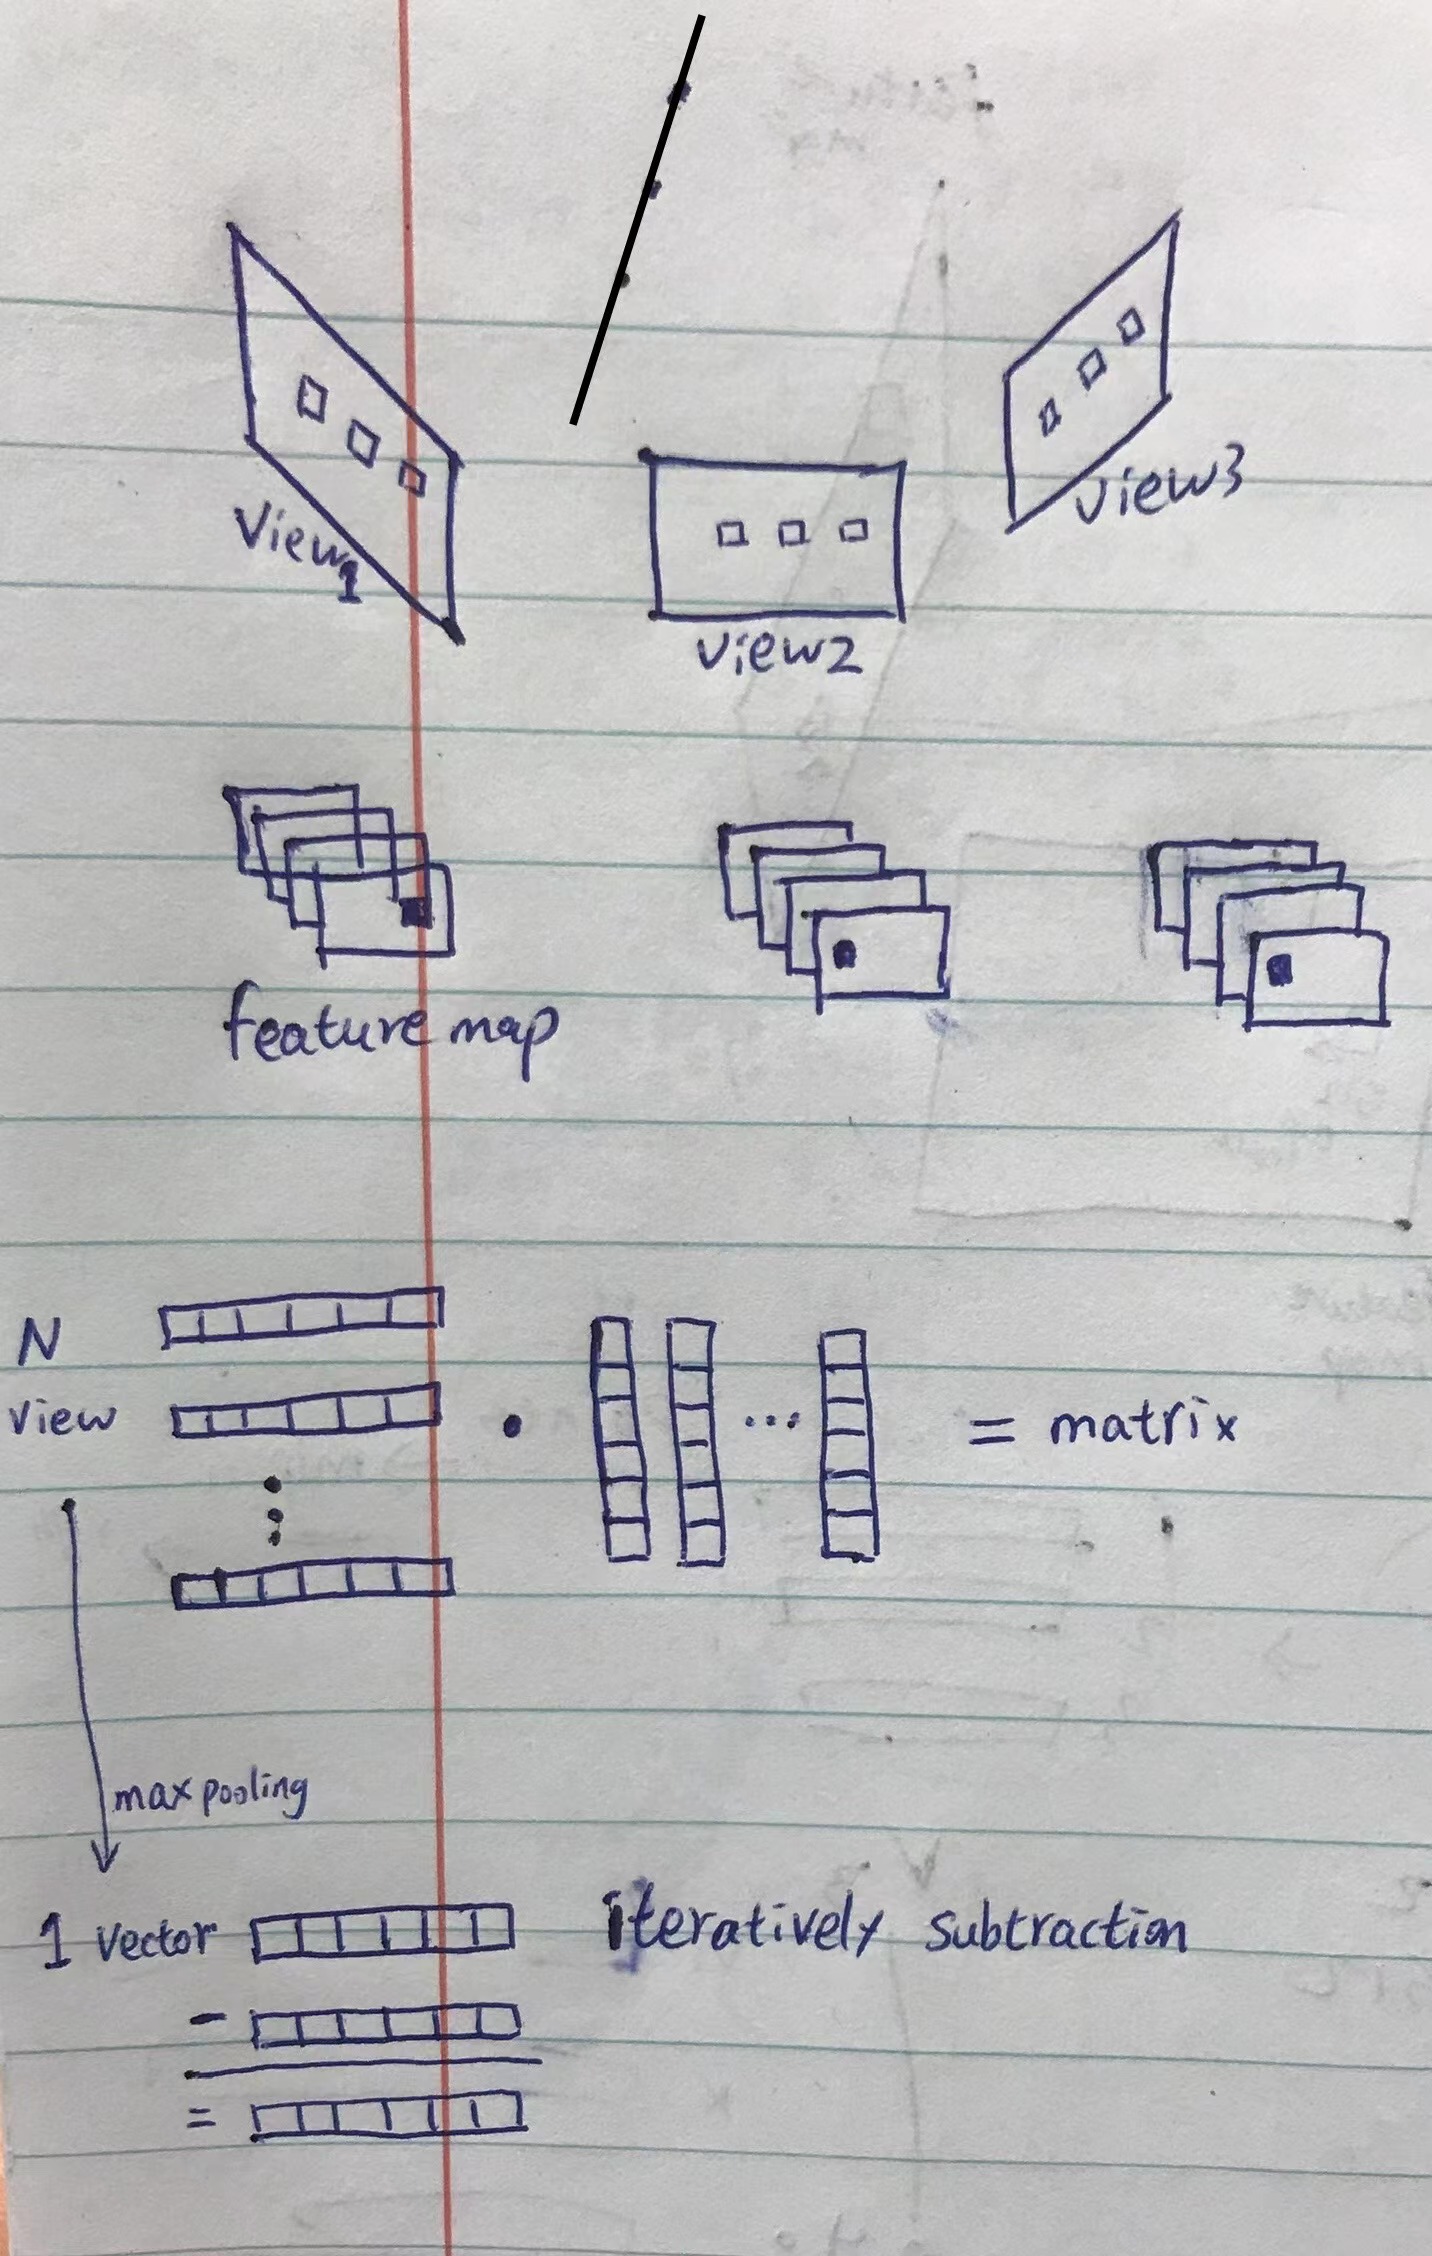 View1
view2
view3
feature map
N
view
= matrix
max pooling
1 vector
iteratively subtraction
-
=